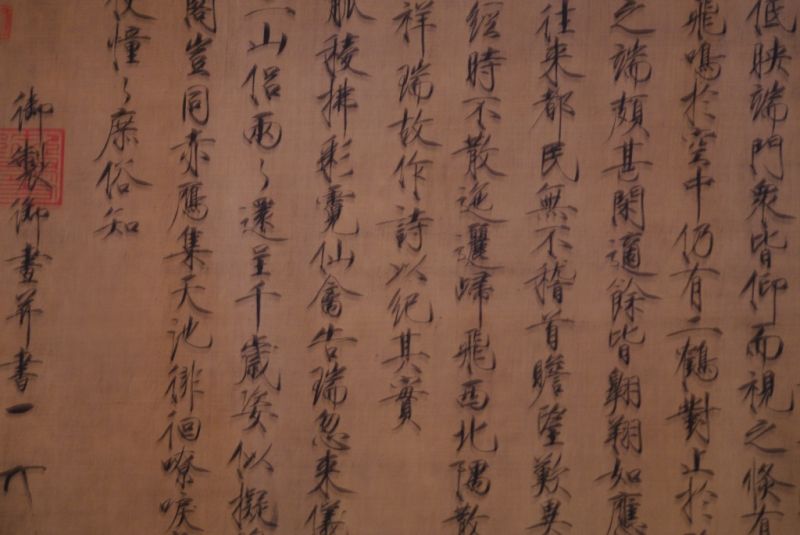 低映端門衆皆仰而視之倏有
飛鳴於空中仍有二鶴對止於
之端頗甚閑適餘皆翱翔如應
往來都民無不稽首瞻望歎異
經時不散迤邐歸飛西北隅散
祥瑞故作詩以紀其實
觚稜拂彩霓仙禽告瑞忽來儀
三山侶兩〻還呈千歲姿似擬
閣豈同赤鴈集天池徘徊嘹唳
使憧〻庶俗知
御製御畫并書